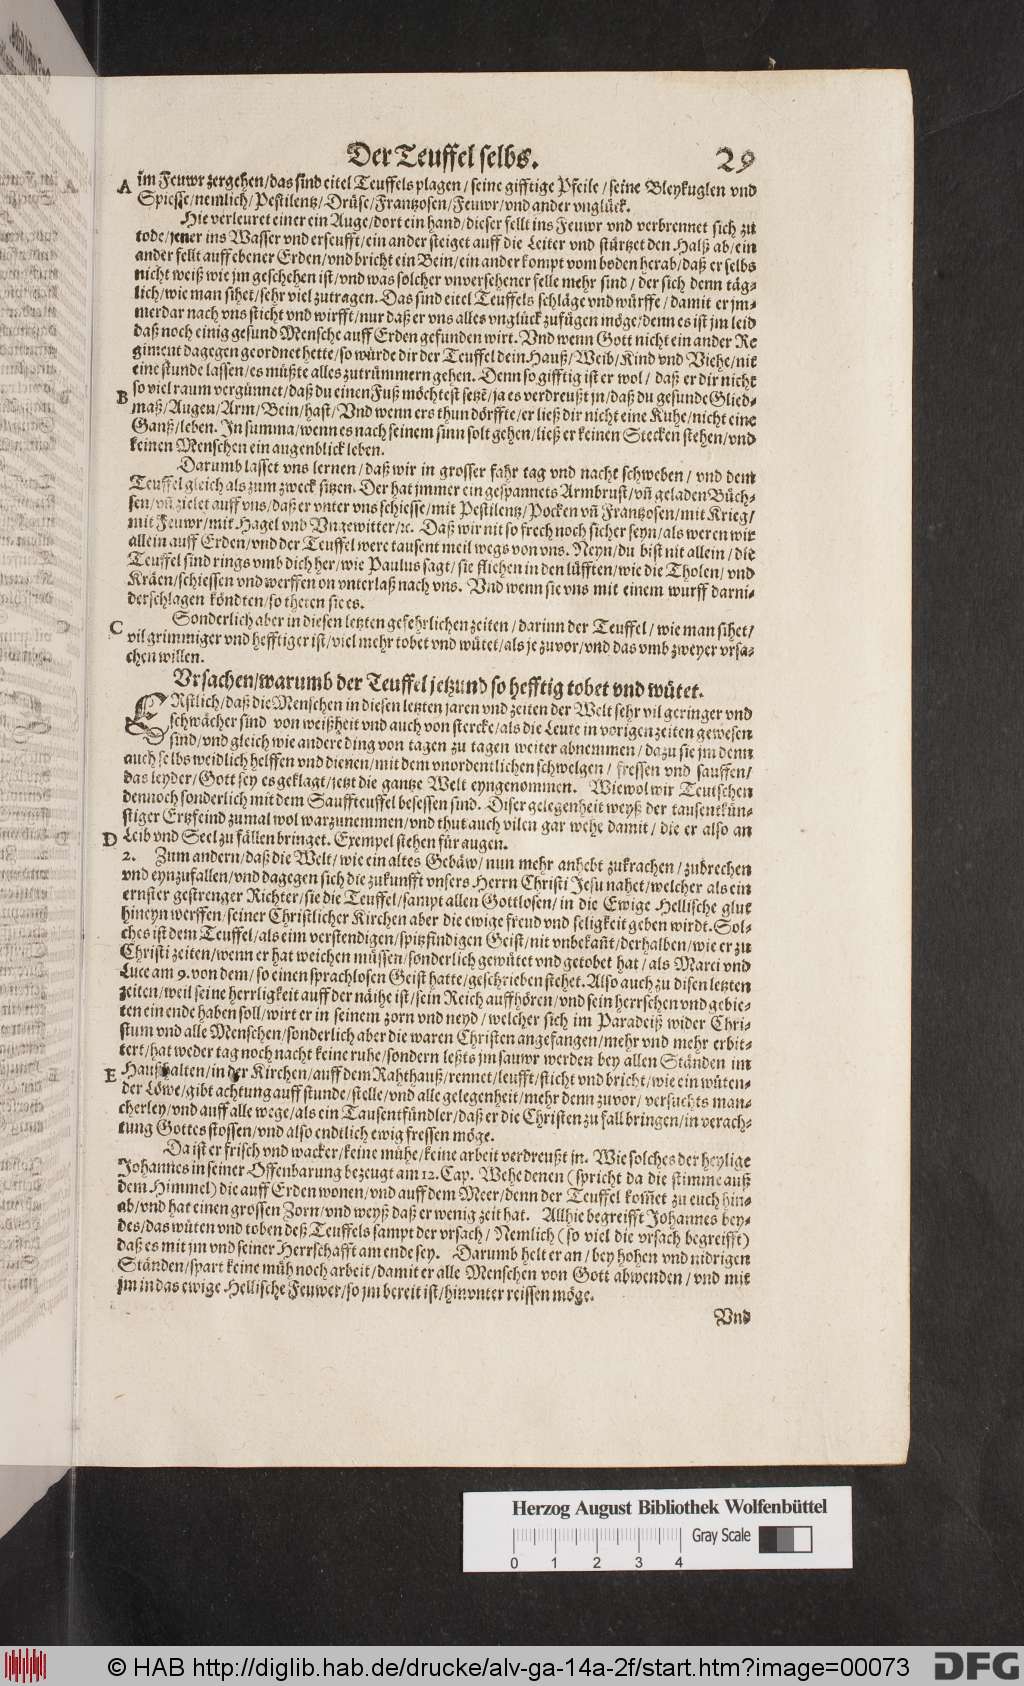 Der Teuffel selbs. 29
A im Feuwr zergehen/das sind eitel Teuffels plagen/seine gifftige Pfeile/seine Bleykuglen vnd
Spiesse/nemlich/Pestilentz/Drüse/Frantzosen/Feuwr/vnd ander vnglück.
Hie verleuret einer ein Auge/dort ein hand/dieser fellt ins Feuwr vnd verbrennet sich zu
tode/jener ins Wasser vnd erseufft/ein ander steiget auff die Leiter vnd stürtzet den Halß ab/ein
ander fellt auff ebener Erden/vnd bricht ein Bein/ein ander kompt vom boden herab/daß er selbs
nicht weiß wie jm geschehen ist/vnd was solcher vnversehener felle mehr sind/der sich denn täg-
lich/wie man sihet/sehr viel zutragen. Das sind eitel Teuffels schläge vnd würffe/damit er jm-
merdar nach vns sticht vnd wirfft/nur daß er vns alles vnglück zufügen möge/denn es ist jm leid
daß noch einig gesund Mensche auff Erden gefunden wirt. Vnd wenn Gott nicht ein ander Re
giment dagegen geordnet hette/so würde dir der Teuffel dein Hauß/Weib/Kind vnd Viehe/nit
eine stunde lassen/es müßte alles zutrümmern gehen. Denn so gifftig ist er wol/daß er dir nicht
B so viel raum vergünnet/daß du einen Fuß möchtest setzẽ/ja es verdreußt jn/daß du gesunde Glied-
maß/Augen/Arm/Bein/hast/Vnd wenn ers thun dörffte/er ließ dir nicht eine Kuhe/nicht eine
Ganß/leben. In summa/wenn es nach seinem sinn solt gehen/ließ er keinen Stecken stehen/vnd
keinen Menschen ein augenblick leben.
Darumb lasset vns lernen/daß wir in grosser fahr tag vnd nacht schweben/vnd dem
Teuffel gleich als zum zweck sitzen. Der hat jmmer ein gespannets Armbrust/vñ geladen Büch-
sen/vñ zielet auff vns/daß er vnter vns schiesse/mit Pestilentz/Pocken vñ Frantzosen/mit Krieg/
mit Feuwr/mit Hagel vnd Vngewitter/ꝛc. Daß wir nit so frech noch sicher seyn/als weren wir
allein auff Erden/vnd der Teuffel were tausent meil wegs von vns. Neyn/du bist nit allein/die
Teuffel sind rings vmb dich her/wie Paulus sagt/sie fliehen in den lüfften/wie die Tholen/vnd
Kräen/schiessen vnd werffen on vnterlaß nach vns. Vnd wenn sie vns mit einem wurff darni-
derschlagen köndten/so theten sie es.
C Sonderlich aber in diesen letzten gefehrlichen zeiten/darinn der Teuffel/wie man sihet/
vil grimmiger vnd hefftiger ist/viel mehr tobet vnd wütet/als je zuvor/vnd das vmb zweyer vrsa-
chen willen.
Vrsachen/warumb der Teuffel jetzund so hefftig tobet vnd wütet.
ERstlich/daß die Menschen in diesen letzten jaren vnd zeiten der Welt sehr vil geringer vnd
schwächer sind von weißheit vnd auch von stercke/als die Leute in vorigen zeiten gewesen
sind/vnd gleich wie andere ding von tagen zu tagen weiter abnemmen/dazu sie jm denn
auch selbs weidlich helffen vnd dienen/mit dem vnordentlichen schwelgen/fressen vnd sauffen/
das leyder/Gott sey es geklagt/jetzt die gantze Welt eyngenommen. Wiewol wir Teutschen
dennoch sonderlich mit dem Sauffteuffel besessen sind. Diser gelegenheit weyß der tausentkün-
stiger Ertzfeind zumal wol warzunemmen/vnd thut auch vilen gar wehe damit/die er also an
D Leib vnd Seel zu fällen bringet. Exempel stehen für augen.
2. Zum andern/daß die Welt/wie ein altes Gebäw/nun mehr anhebt zukrachen/zubrechen
vnd eynzufallen/vnd dagegen sich die zukunfft vnsers Herrn Christi Jesu nahet/welcher als ein
ernster gestrenger Richter/sie die Teuffel/sampt allen Gottlosen/in die Ewige Hellische glut
hineyn werffen/seiner Christlicher Kirchen aber die ewige freud vnd seligkeit geben wirdt. Sol-
ches ist dem Teuffel/als eim verstendigen/spitzfindigen Geist/nit vnbekañt/derhalben/wie er zu
Christi zeiten/wenn er hat weichen müssen/sonderlich gewütet vnd getobet hat/als Marci vnd
Luce am 9. von dem/so einen sprachlosen Geist hatte/geschrieben stehet. Also auch zu disen letzten
zeiten/weil seine herrligkeit auff der näihe ist/sein Reich auffhören/vnd sein herrschen vnd gebie-
ten ein ende haben soll/wirt er in seinem zorn vnd neyd/welcher sich im Paradeiß wider Chri-
stum vnd alle Menschen/sonderlich aber die waren Christen angefangen/mehr vnd mehr erbit-
tert/hat weder tag noch nacht keine ruhe/sondern leßts jm sauwr werden bey allen Ständen im
E Haußhalten/in der Kirchen/auff dem Rahthauß/rennet/leufft/sticht vnd bricht/wie ein wüten-
der Löwe/gibt achtung auff stunde/stelle/vnd alle gelegenheit/mehr denn zuvor/versuchts man-
cherley/vnd auff alle wege/als ein Tausentkündler/daß er die Christen zu fall bringen/in verach-
tung Gottes stossen/vnd also endtlich ewig fressen möge.
Da ist er frisch vnd wacker/keine mühe/keine arbeit verdreußt jn. Wie solches der heylige
Johannes in seiner Offenbarung bezeugt am 12. Cap. Wehe denen (spricht da die stimme auß
dem Himmel) die auff Erden wonen/vnd auff dem Meer/denn der Teuffel kom̃et zu euch hin-
ab/vnd hat einen grossen Zorn/vnd weyß daß er wenig zeit hat. Allhie begreifft Johannes bey-
des/das wüten vnd toben deß Teuffels sampt der vrsach/Nemlich (so viel die vrsach begreifft)
daß es mit jm vnd seiner Herrschafft am ende sey. Darumb helt er an/bey hohen vnd nidrigen
Ständen/spart keine müh noch arbeit/damit er alle Menschen von Gott abwenden/vnd mit
jm in das ewige Hellische Feuwer/so jm bereit ist/hinvnter reissen möge.
Vnd
Herzog August Bibliothek Wolfenbüttel
Gray Scale
0 1 2 3 4
© HAB http://diglib.hab.de/drucke/alv-ga-14a-2f/start.htm?image=00073
DFG